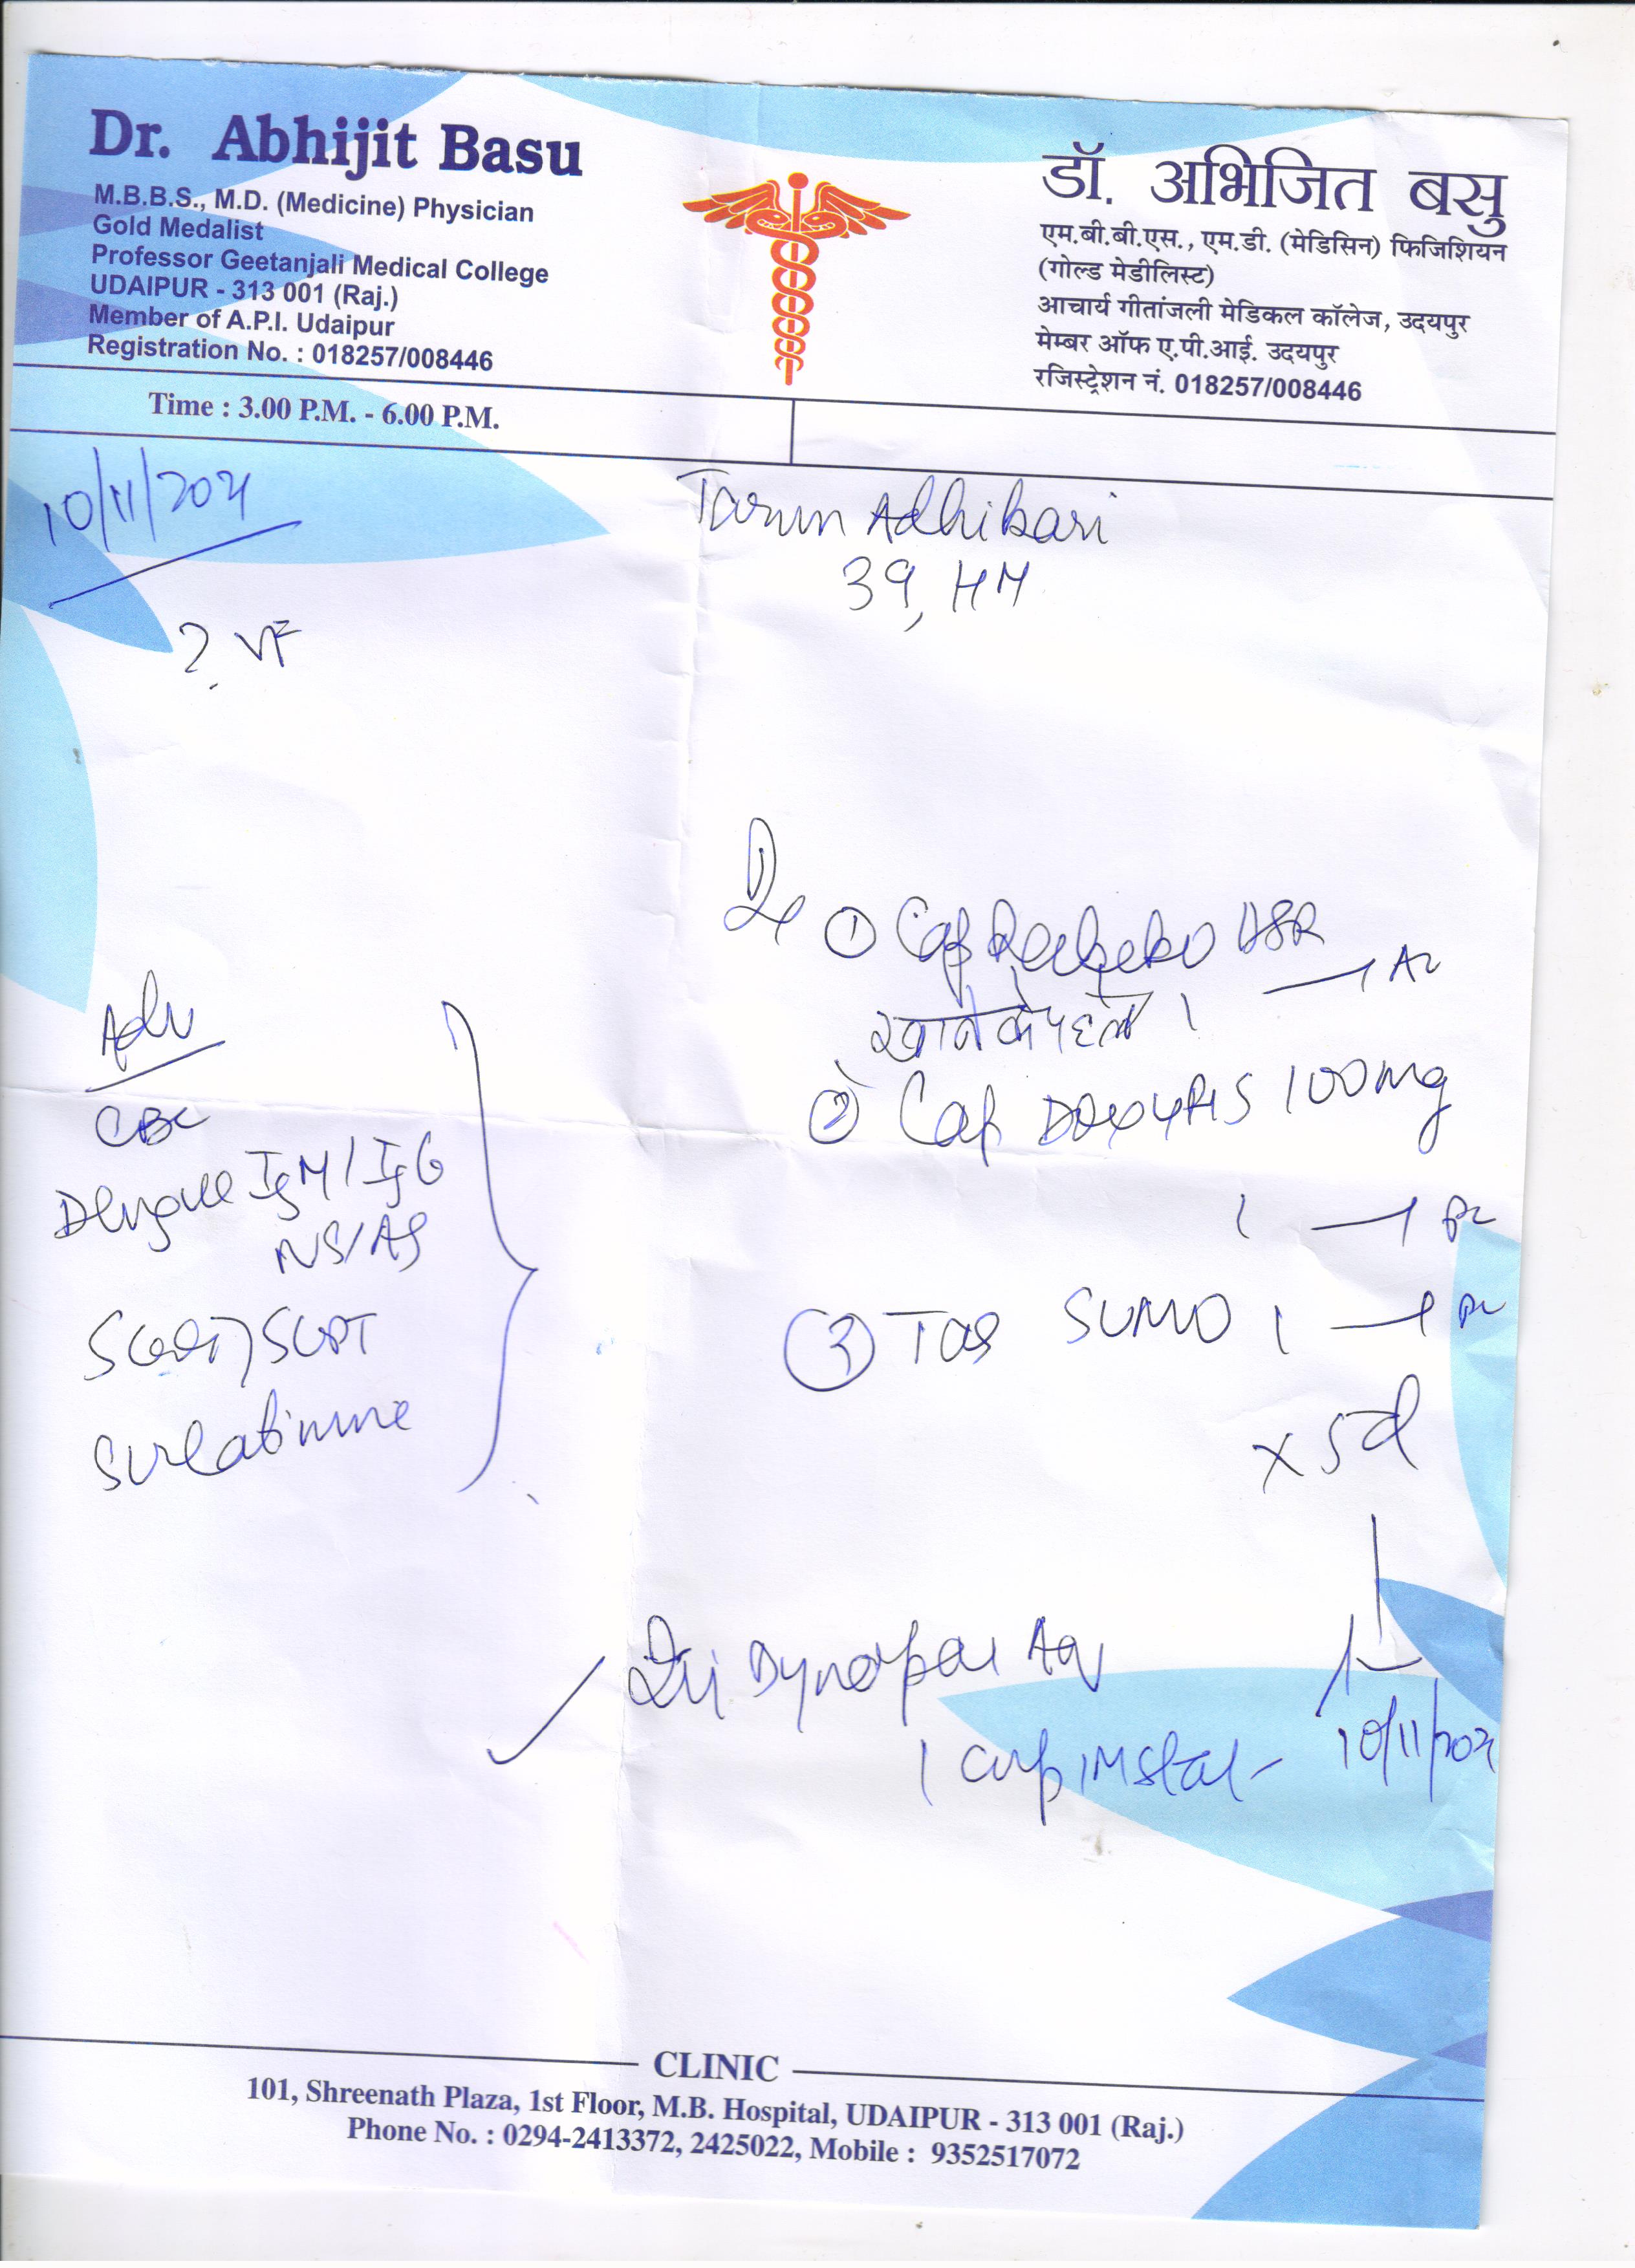 Dr. Abhijit Basu
M.B.B.S., M.D. (Medicine) Physician
Gold Medalist
Professor Geetanjali Medical College
UDAIPUR - 313 001 (Raj.)
Member of A.P.I. Udaipur
Registration No. : 018257/008446
डॉ. अभिजित बसु
एम.बी.बी.एस., एम.डी. (मेडिसिन) फिजिशियन
(गोल्ड मेडीलिस्ट)
आचार्य गीतांजली मेडिकल कॉलेज, उदयपुर
मेम्बर ऑफ ए.पी.आई. उदयपुर
रजिस्ट्रेशन नं. 018257/008446
Time : 3.00 P.M. - 6.00 P.M.
10/11/2021
Tarun Adhikari
39, HM
? VF
Adv
CBC
Dengue IgM/IgG
NS1Ag
SGOT/SGPT
S. Creatinine
① Cap DSR
खाने के पहले 1 → AC
② Cap 100mg
1 →
③ Tab SUMO 1 →
x 5d
Inj Dynapar AQ
1 amp IM stat
10/11/202
CLINIC
101, Shreenath Plaza, 1st Floor, M.B. Hospital, UDAIPUR - 313 001 (Raj.)
Phone No. : 0294-2413372, 2425022, Mobile : 9352517072